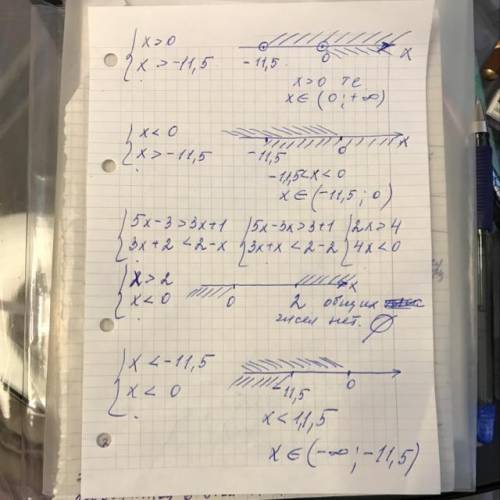 { x > 0
{ x > -11,5
-11,5 0 x
x > 0 те
x ∈ (0; +∞)
{ x < 0
{ x > -11,5
-11,5 0 x
-11,5 < x < 0
x ∈ (-11,5; 0)
{ 5x-3 > 3x+1 { 5x-3x > 3+1 { 2x > 4
{ 3x+2 < 2-x { 3x+x < 2-2 { 4x < 0
{ x > 2
{ x < 0
0 2 x
общих
чисел нет. ∅
{ x < -11,5
{ x < 0
-11,5 0
x < 11,5
x ∈ (-∞; -11,5)